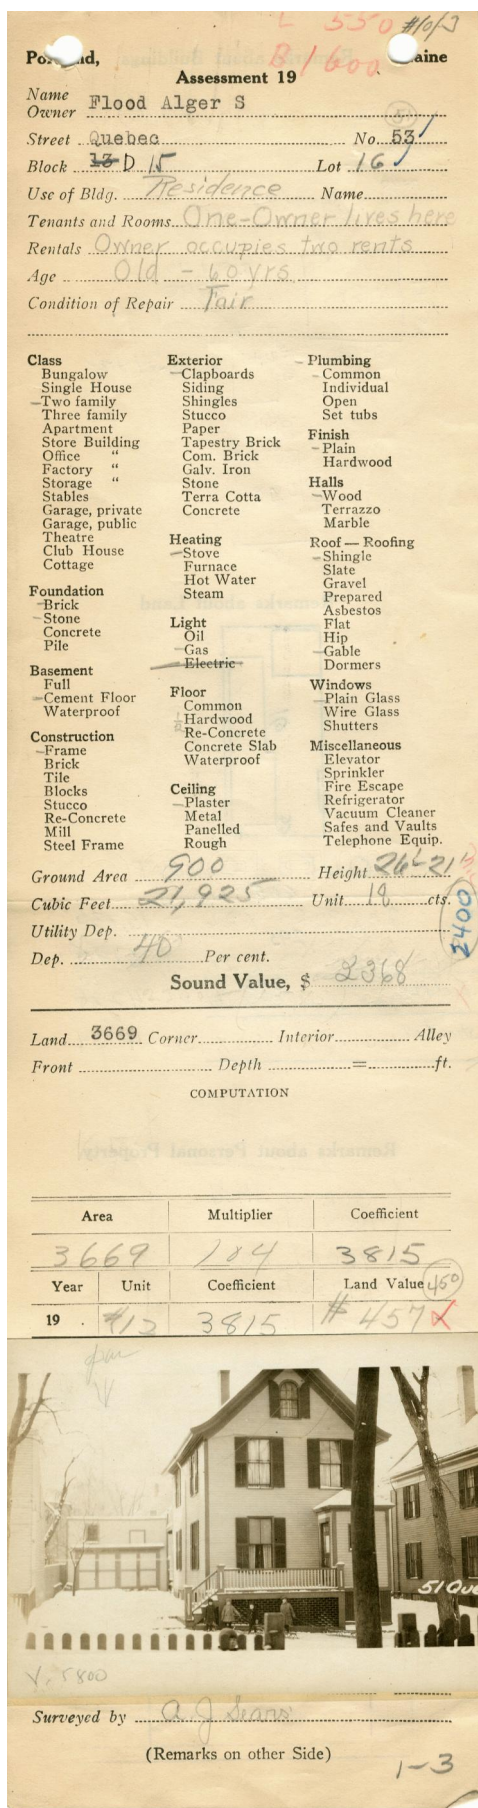 L 550 #10/3
B 1600
Portland, Maine
Assessment 19
Name
Owner Flood Alger S
51
Street Quebec No. 53
Block 13 D 15 Lot 16
Use of Bldg. Residence Name
Tenants and Rooms One-Owner lives here
Rentals Owner occupies two rents
Age Old - 60 yrs
Condition of Repair Fair
Class
Bungalow
Single House
Two family
Three family
Apartment
Store Building
Office "
Factory "
Storage "
Stables
Garage, private
Garage, public
Theatre
Club House
Cottage
Foundation
Brick
Stone
Concrete
Pile
Basement
Full
Cement Floor
Waterproof
Construction
Frame
Brick
Tile
Blocks
Stucco
Re-Concrete
Mill
Steel Frame
Exterior
Clapboards
Siding
Shingles
Stucco
Paper
Tapestry Brick
Com. Brick
Galv. Iron
Stone
Terra Cotta
Concrete
Heating
Stove
Furnace
Hot Water
Steam
Light
Oil
Gas
Electric
Floor
Common
Hardwood
Re-Concrete
Concrete Slab
Waterproof
Ceiling
Plaster
Metal
Panelled
Rough
Plumbing
Common
Individual
Open
Set tubs
Finish
Plain
Hardwood
Halls
Wood
Terrazzo
Marble
Roof — Roofing
Shingle
Slate
Gravel
Prepared
Asbestos
Flat
Hip
Gable
Dormers
Windows
Plain Glass
Wire Glass
Shutters
Miscellaneous
Elevator
Sprinkler
Fire Escape
Refrigerator
Vacuum Cleaner
Safes and Vaults
Telephone Equip.
Ground Area 900 Height 26'-21'
Cubic Feet 21,925 Unit 18 cts.
2400
Utility Dep.
Dep. 40 Per cent.
Sound Value, $ 2368
Land 3669 Corner Interior Alley
Front Depth = ft.
COMPUTATION
Remarks about Personal Property
Area Multiplier Coefficient
3669 104 3815
Year Unit Coefficient Land Value 450
19 #12 3815 # 457
51 Que
V. 5800
Surveyed by A J Sears
(Remarks on other Side)
1-3